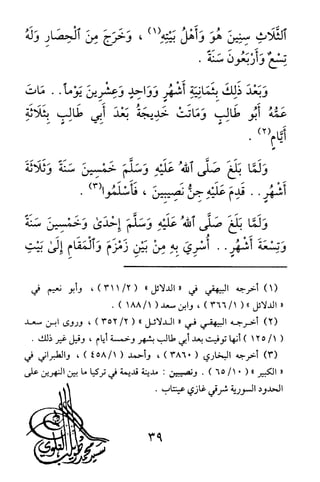 ٱلثَّلَاثِ سِنِينَ هُوَ وَأَهْلُ بَيْتِهِ(١) ، وَخَرَجَ مِنَ ٱلْحِصَارِ وَلَهُ
تِسْعٌ وَأَرْبَعُونَ سَنَةً .
وَبَعْدَ ذَلِكَ بِثَمَانِيَةِ أَشْهُرٍ وَوَاحِدٍ وَعِشْرِينَ يَوْماً.. مَاتَ
عَمُّهُ أَبُو طَالِبٍ وَمَاتَتْ خَدِيجَةُ بَعْدَ أَبِي طَالِبٍ بِثَلَاثَةِ
أَيَّامٍ(٢) .
وَلَمَّا بَلَغَ صَلَّى ٱللهُ عَلَيْهِ وَسَلَّمَ خَمْسِينَ سَنَةً وَثَلَاثَةَ
أَشْهُرٍ.. قَدِمَ عَلَيْهِ جِنُّ نَصِيبِينَ ، فَأَسْلَمُوا(٣) .
وَلَمَّا بَلَغَ صَلَّى ٱللهُ عَلَيْهِ وَسَلَّمَ إِحْدَىٰ وَخَمْسِينَ سَنَةً
وَتِسْعَةَ أَشْهُرٍ.. أُسْرِيَ بِهِ مِنْ بَيْنِ زَمْزَمَ وَٱلْمَقَامِ إِلَىٰ بَيْتِ
(١) أخرجه البيهقي في « الدلائل » ( ٣١١/٢ ) ، وأبو نعيم في
« الدلائل » ( ٣٦٦/١ ) ، وابن سعد ( ١٨٨/١ ) .
(٢) أخرجه البيهقي في « الدلائل » ( ٣٥٢/٢ ) ، وروى ابن سعد
( ١٢٥/١ ) أنها توفيت بعد أبي طالب بشهر وخمسة أيام ، وقيل غير ذلك .
(٣) أخرجه البخاري ( ٣٨٦٠ ) ، وأحمد ( ٤٥٨/١ ) ، والطبراني في
« الكبير » ( ٦٥/١٠ ) . ونصيبين : مدينة قديمة في تركيا ما بين النهرين على
الحدود السورية شرقي غازي عينتاب .
٣٩